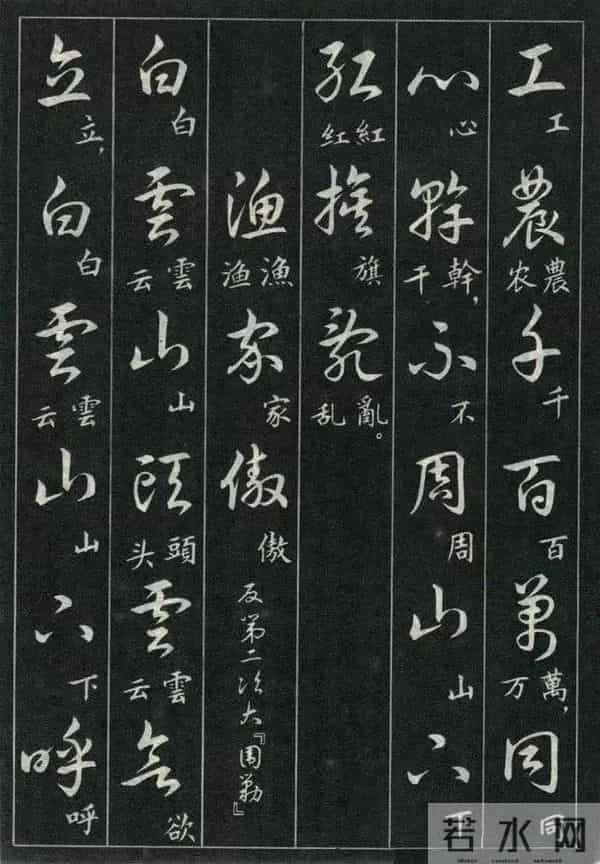 工工農農农千千百百萬萬,万同同
心心幹幹,干不不周周山山下下
紅紅红旗旗亂亂。乱
漁漁渔家家傲傲反第二次大『围剿』
白白雲雲云山山頭頭头雲雲云欲欲
立立,白白雲雲云山山下下呼呼
若水网